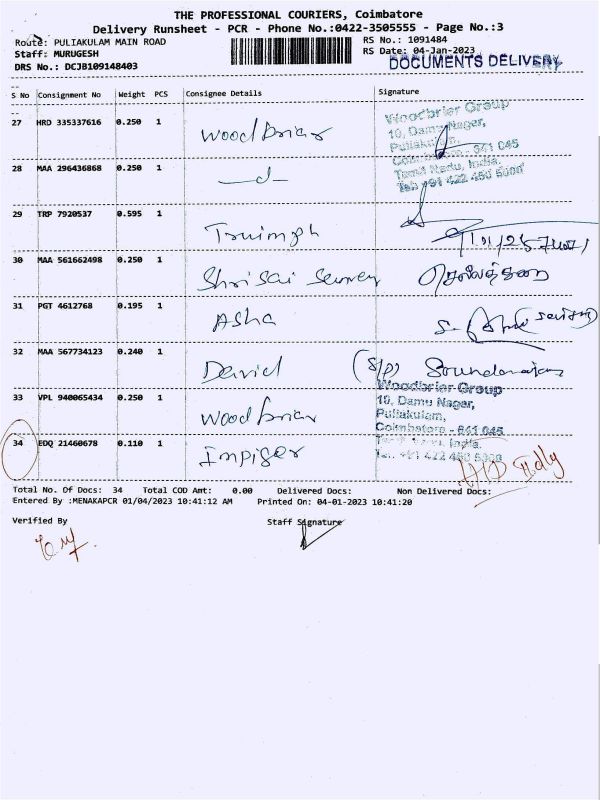 THE PROFESSIONAL COURIERS, Coimbatore
Delivery Runsheet - PCR - Phone No.:0422-3505555 - Page No.:3
Route: PULIAKULAM MAIN ROAD RS No.: 1091484
Staff: MURUGESH RS Date: 04-Jan-2023
DRS No.: DCJB109148403 DOCUMENTS DELIVERY
S No Consignment No Weight PCS Consignee Details Signature
27 HRD 335337616 0.250 1 Woodbriar
Woodbriar Group
10, Damu Nager,
Puliakulam,
Coimbatore - 641 045
Tamil Nadu, India.
Tel: +91 422 450 5000
28 MAA 296436868 0.250 1 —d—
29 TRP 7920537 0.595 1 Truimph
30 MAA 561662498 0.250 1 Shri Sai Survey
31 PGT 4612768 0.195 1 Asha
32 MAA 567734123 0.240 1 David (S/P) Soundarajan
33 VPL 940065434 0.250 1 Woodbriar
Woodbriar Group
10, Damu Nager,
Puliakulam,
Coimbatore - 641 045
Tamil Nadu, India.
Tel: +91 422 450 5000
34 EDQ 21460678 0.110 1 Impiger
Total No. Of Docs: 34 Total COD Amt: 0.00 Delivered Docs: Non Delivered Docs:
Entered By :MENAKAPCR 01/04/2023 10:41:12 AM Printed On: 04-01-2023 10:41:20
Verified By Staff Signature